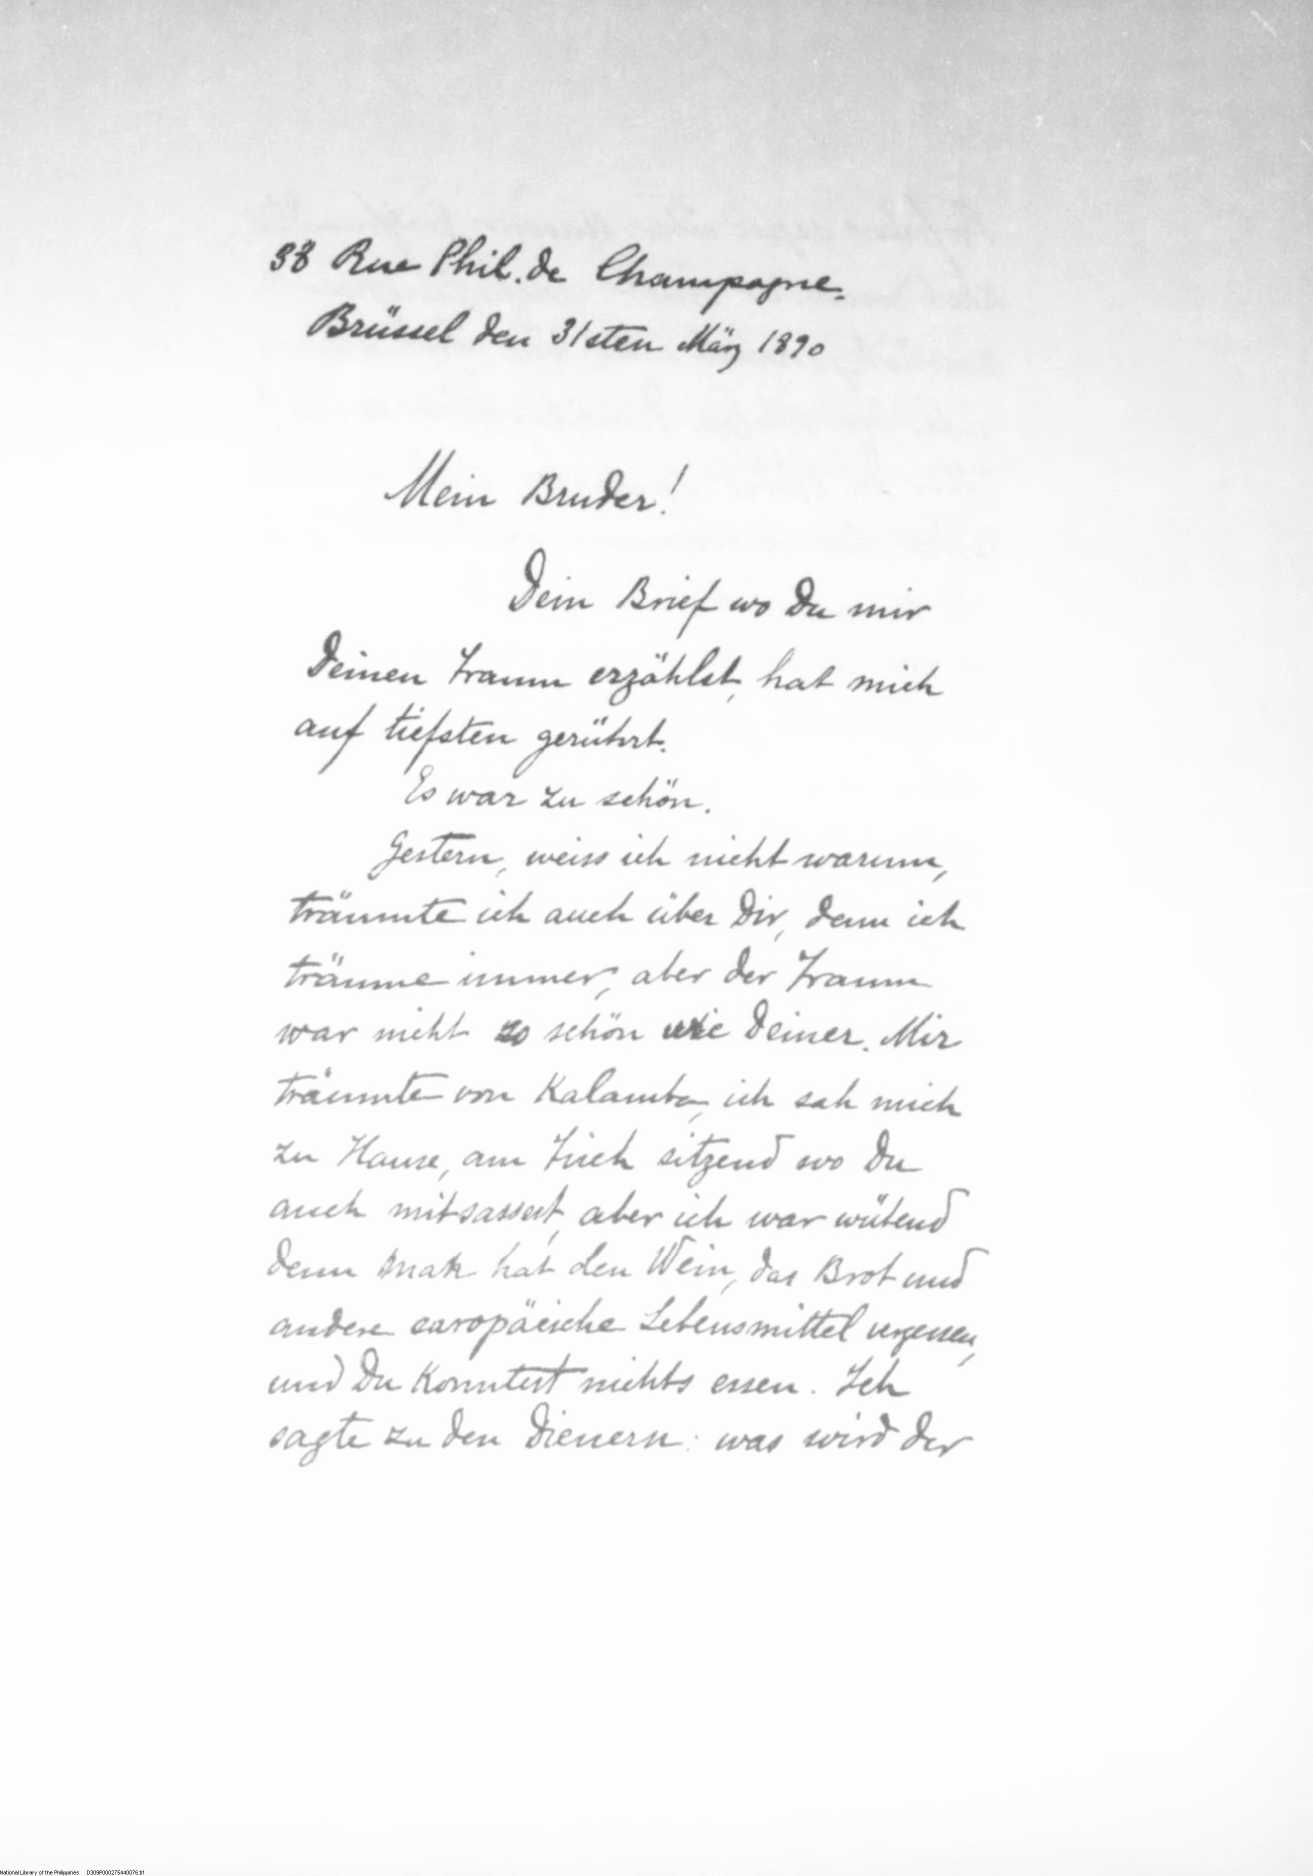 38 Rue Phil. de Champagne.
Brüssel den 31sten März 1890
Mein Bruder!
Dein Brief wo Du mir
Deinen Traum erzählst, hat mich
auf tiefsten gerührt.
Es war zu schön.
Gestern, weiss ich nicht warum,
träumte ich auch über Dir, denn ich
träume immer, aber der Traum
war nicht so schön wie Deiner. Mir
träumte von Kalamba, ich sah mich
zu Hause, am Tisch sitzend wo Du
auch mitsassest, aber ich war wütend
denn man hat den Wein, das Brot und
andere europäische Lebensmittel vergessen,
und Du konntest nichts essen. Ich
sagte zu den Dienern: was wird der
National Library of the Philippines D309P000275440076.tif